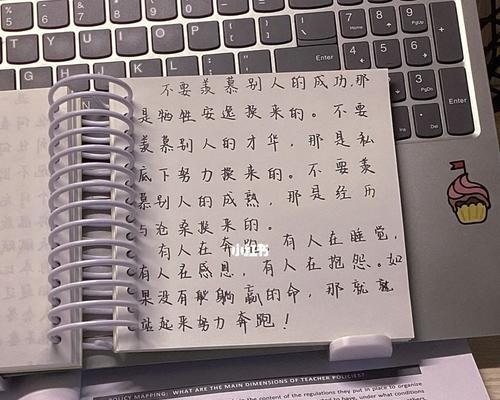 不要羡慕别人的成功,那
是牺牲安逸换来的。不要
羡慕别人的才华,那是私
底下努力换来的。不要羡
慕别人的成熟,那是经历
与沧桑换来的。
有人在奔跑,有人在睡觉,
有人在感恩,有人在抱怨。如
果没有躺躺赢的命,那就
站起来努力奔跑!
小红书
POLICY MAPPING: WHAT ARE THE MAIN DIMENSIONS OF TEACHER POLICIES?
in the content of the regulations they put in place to organize